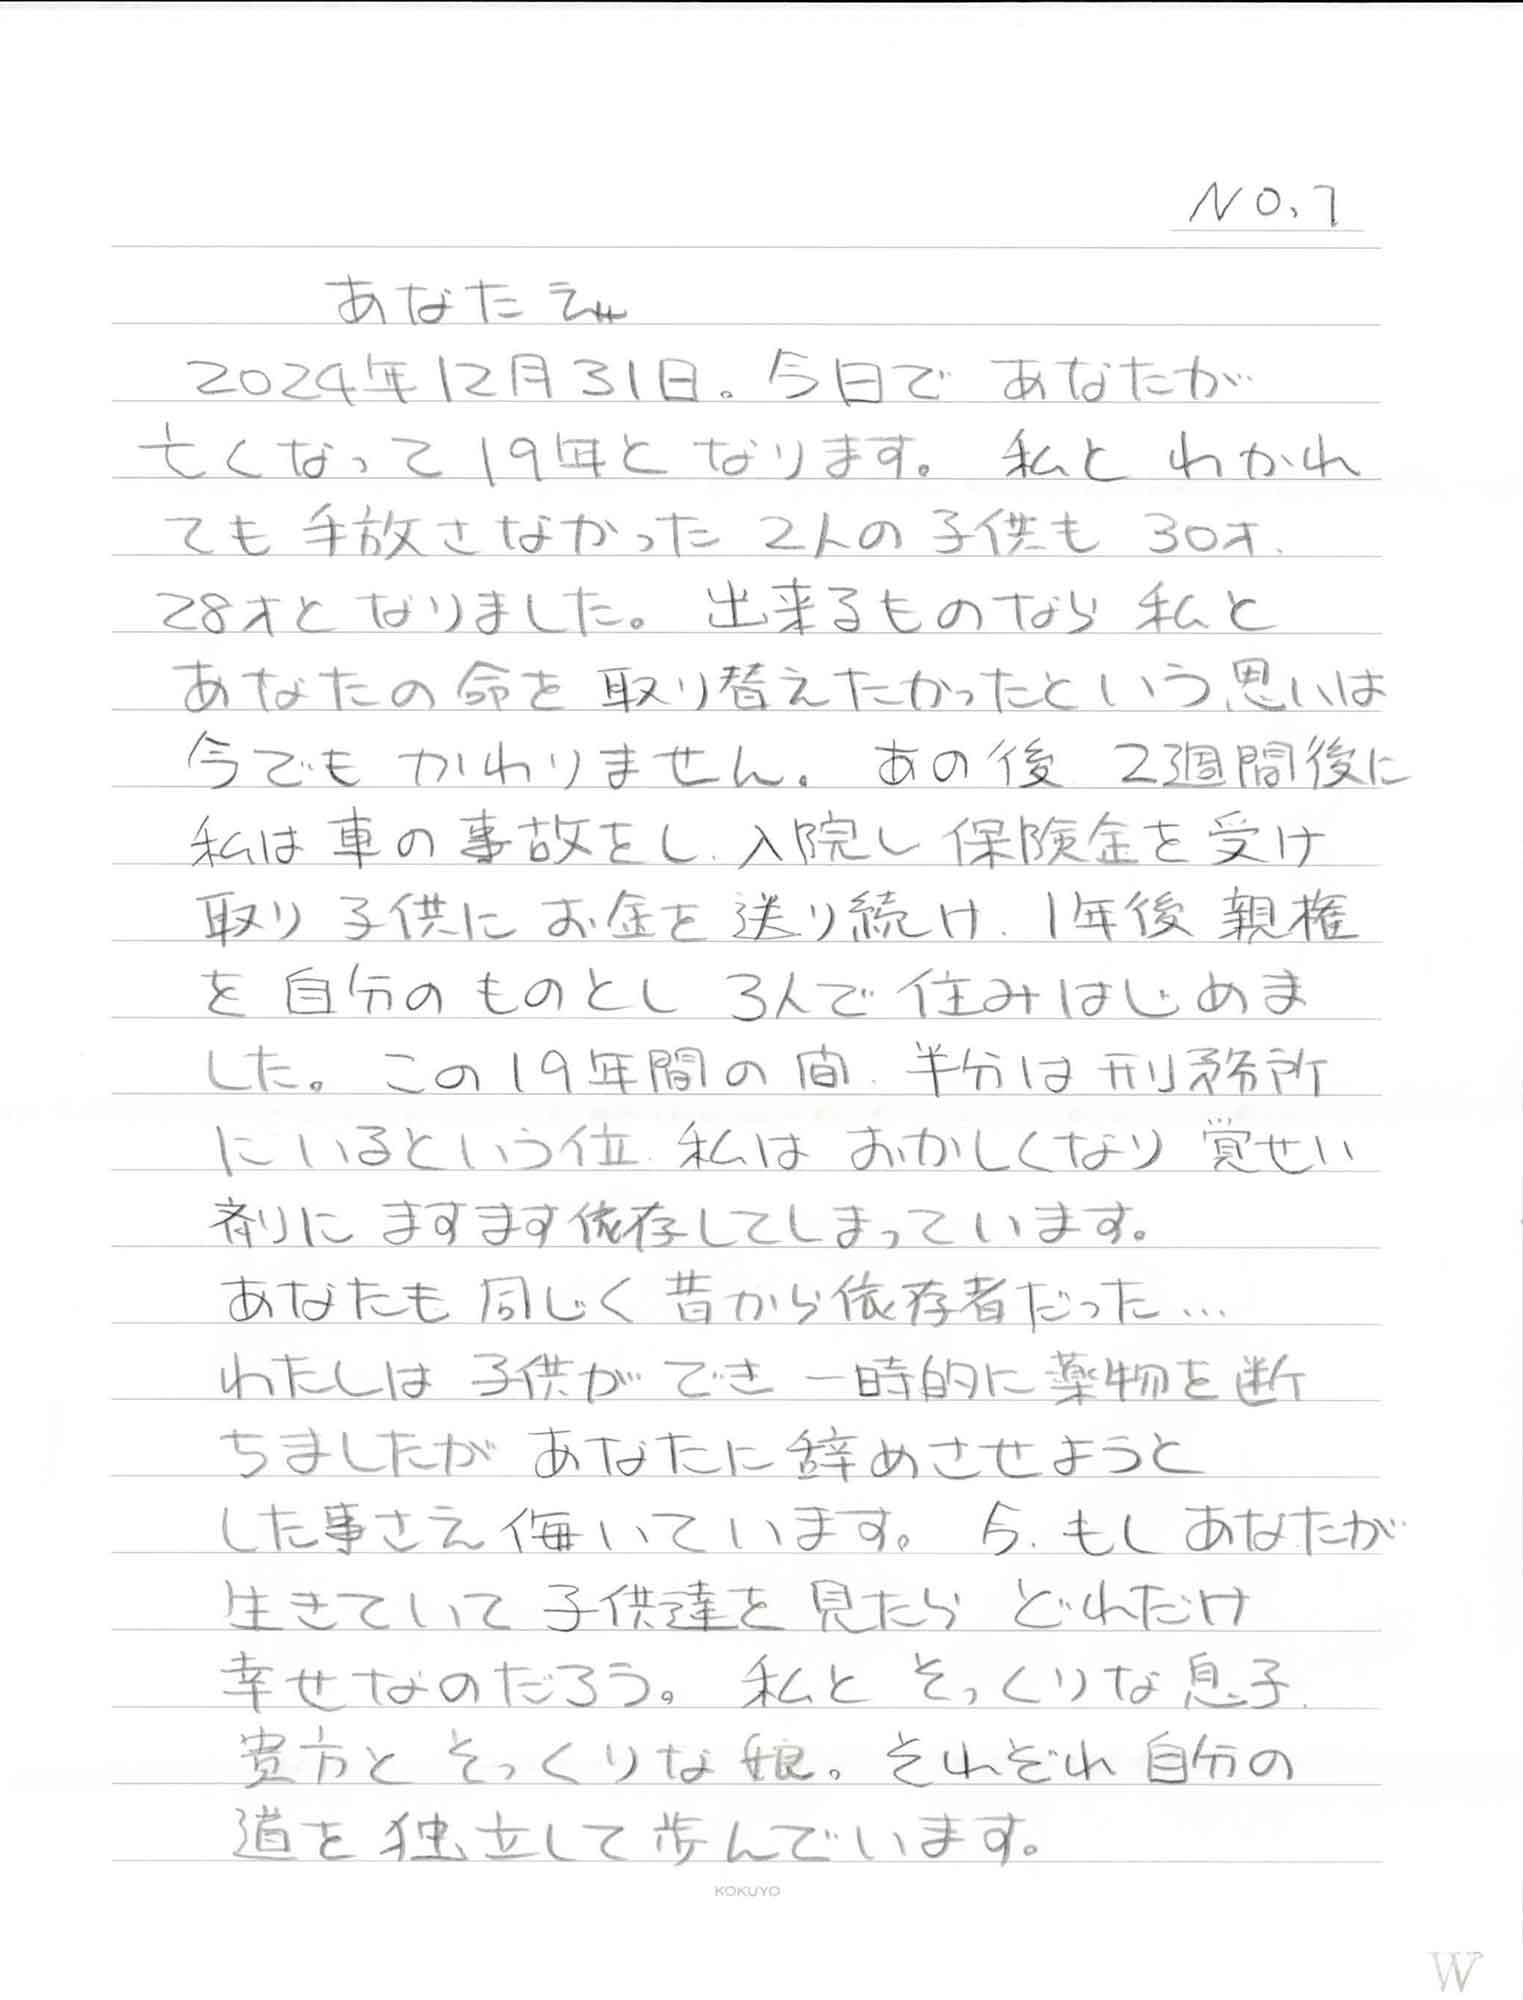 NO,1
あなたえ
2024年12月31日。今日であなたが
亡くなって19年となります。私とわかれ
ても手放さなかった2人の子供も30才、
28才となりました。出来るものなら私と
あなたの命を取り替えたかったという思いは
今でもかわりません。あの後2週間後に
私は車の事故をし、入院し保険金を受け
取り子供にお金を送り続け、1年後親権
を自分のものとし3人で住みはじめま
した。この19年間の間、半分は刑務所
にいるという位、私はおかしくなり覚せい
剤にますます依存してしまっています。
あなたも同じく昔から依存者だった…
わたしは子供ができ一時的に薬物を断
ちましたがあなたに辞めさせようと
した事さえ侮いています。今、もしあなたが
生きていて子供達を見たらどれだけ
幸せなのだろう。私とそっくりな息子、
貴方とそっくりな娘。それぞれ自分の
道を独立して歩んでいます。
KOKUYO
W